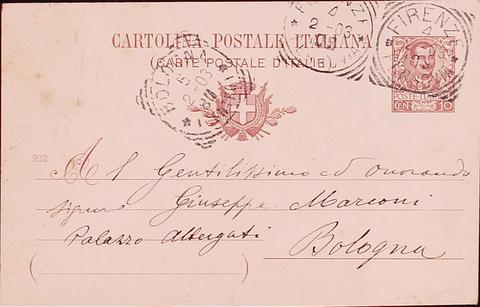 FIRENZE
4
2-03
FIRENZE
4
CARTOLINA POSTALE ITALIANA
(CARTE POSTALE D'ITALIE)
BOLOGNA
5
2-03
POSTE ITALIANE
CEN. 10
902
Al Gentilissimo ed onorando
signor Giuseppe Marconi
Palazzo Albergati Bologna